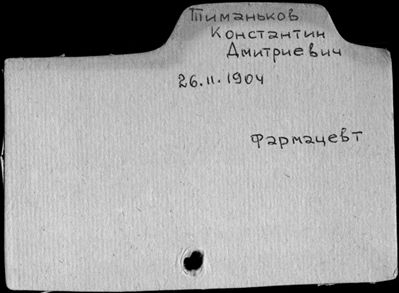 Тиманьков
Константин
Дмитриевич
26.11.1904
Фармацевт